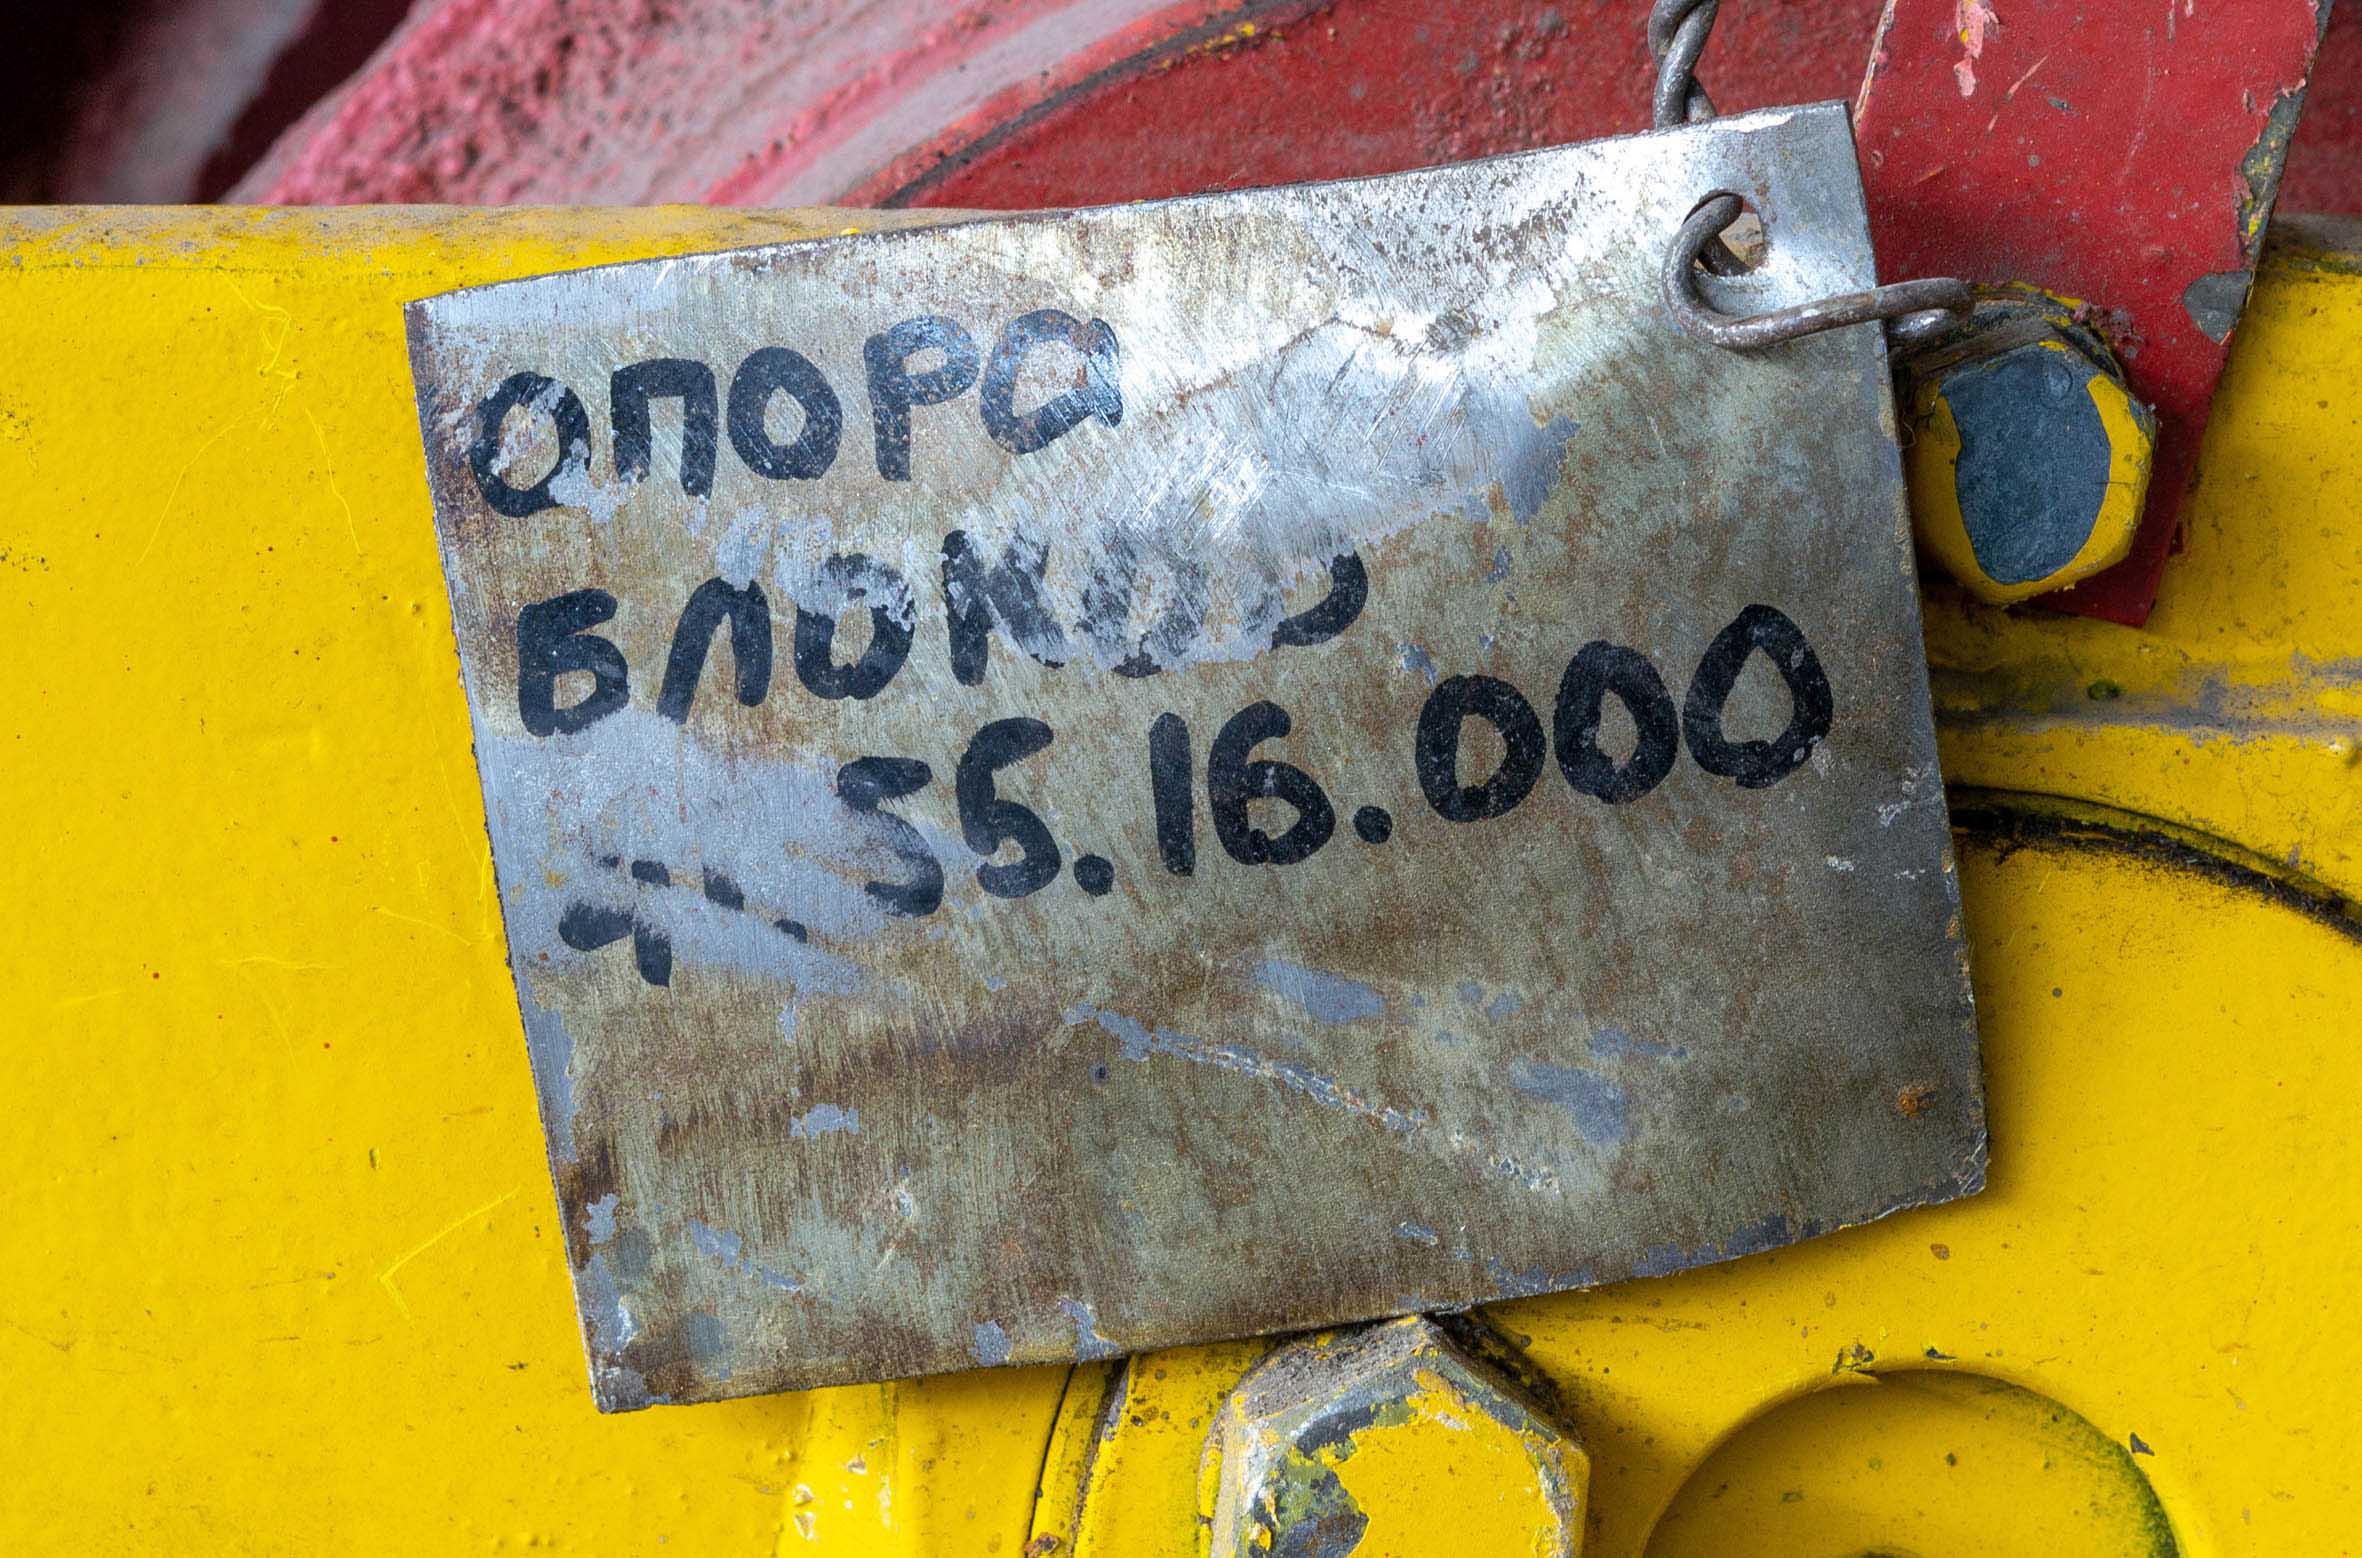 ОПОРА
БЛОКОВ
55.16.000